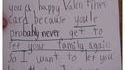 you a happy Valentines
card because you're
probably never get to
let your family again
so I want to let you